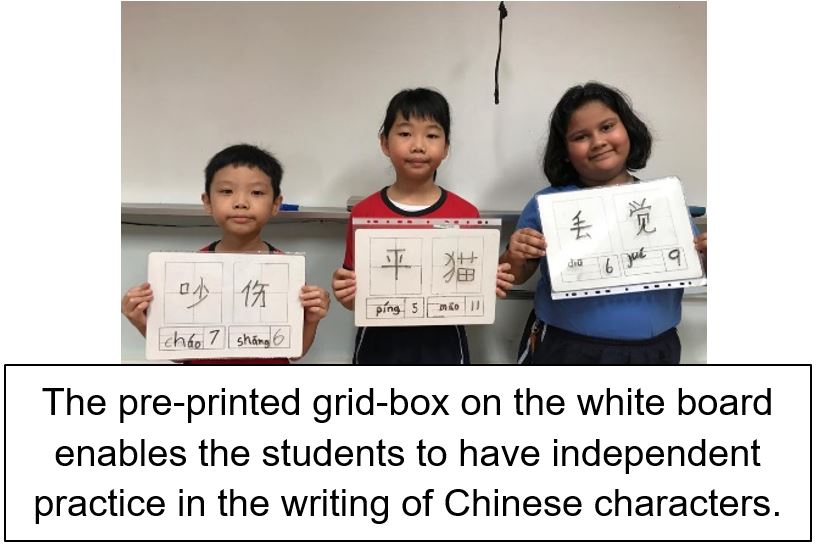 吵 伤
cháo 7 shāng 6
平 猫
píng 5 māo 11
丢 觉
diū 6 jué 9
The pre-printed grid-box on the white board
enables the students to have independent
practice in the writing of Chinese characters.